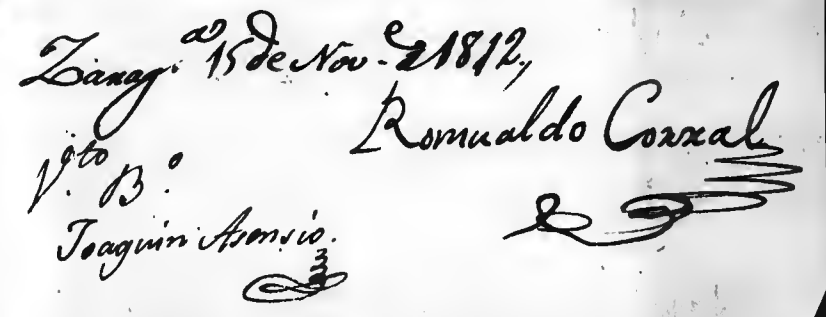 Zarag.ª 15 de Nov.e 1812,,
Romualdo Corral
V.to B.o
Joaquin Asensio.